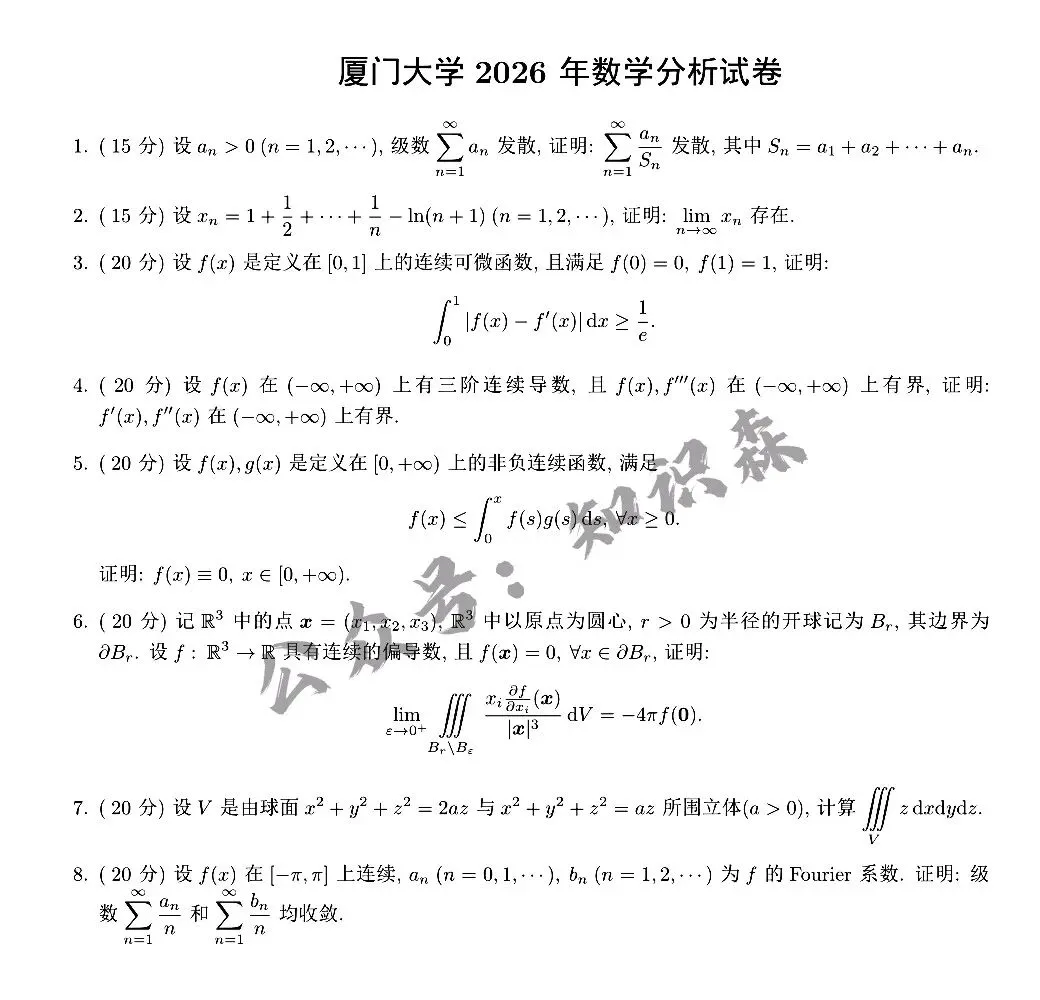 厦门大学 2026 年数学分析试卷
1. ( 15 分) 设 $a_n > 0$ ($n = 1, 2, \cdots$), 级数 $\sum_{n=1}^{\infty} a_n$ 发散, 证明: $\sum_{n=1}^{\infty} \frac{a_n}{S_n}$ 发散, 其中 $S_n = a_1 + a_2 + \cdots + a_n$.
2. ( 15 分) 设 $x_n = 1 + \frac{1}{2} + \cdots + \frac{1}{n} - \ln(n+1)$ ($n = 1, 2, \cdots$), 证明: $\lim_{n \to \infty} x_n$ 存在.
3. ( 20 分) 设 $f(x)$ 是定义在 $[0, 1]$ 上的连续可微函数, 且满足 $f(0) = 0$, $f(1) = 1$, 证明:
$\int_0^1 |f(x) - f'(x)| \, \mathrm{d}x \geq \frac{1}{e}$.
4. ( 20 分) 设 $f(x)$ 在 $(-\infty, +\infty)$ 上有三阶连续导数, 且 $f(x), f'''(x)$ 在 $(-\infty, +\infty)$ 上有界, 证明:
$f'(x), f''(x)$ 在 $(-\infty, +\infty)$ 上有界.
5. ( 20 分) 设 $f(x), g(x)$ 是定义在 $[0, +\infty)$ 上的非负连续函数, 满足
$f(x) \leq \int_0^x f(s)g(s) \, \mathrm{d}s, \ \forall x \geq 0$.
证明: $f(x) \equiv 0, \ x \in [0, +\infty)$.
6. ( 20 分) 记 $\mathbb{R}^3$ 中的点 $\boldsymbol{x} = (x_1, x_2, x_3)$, $\mathbb{R}^3$ 中以原点为圆心, $r > 0$ 为半径的开球记为 $B_r$, 其边界为
$\partial B_r$. 设 $f : \mathbb{R}^3 \to \mathbb{R}$ 具有连续的偏导数, 且 $f(\boldsymbol{x}) = 0, \ \forall x \in \partial B_r$, 证明:
$\lim_{\varepsilon \to 0^+} \iiint_{B_r \setminus B_\varepsilon} \frac{x_i \frac{\partial f}{\partial x_i}(\boldsymbol{x})}{|\boldsymbol{x}|^3} \, \mathrm{d}V = -4\pi f(\boldsymbol{0})$.
7. ( 20 分) 设 $V$ 是由球面 $x^2 + y^2 + z^2 = 2az$ 与 $x^2 + y^2 + z^2 = az$ 所围立体($a > 0$), 计算 $\iiint_V z \, \mathrm{d}x\mathrm{d}y\mathrm{d}z$.
8. ( 20 分) 设 $f(x)$ 在 $[-\pi, \pi]$ 上连续, $a_n$ ($n = 0, 1, \cdots$), $b_n$ ($n = 1, 2, \cdots$) 为 $f$ 的 Fourier 系数. 证明: 级
数 $\sum_{n=1}^{\infty} \frac{a_n}{n}$ 和 $\sum_{n=1}^{\infty} \frac{b_n}{n}$ 均收敛.
公众号：知识森